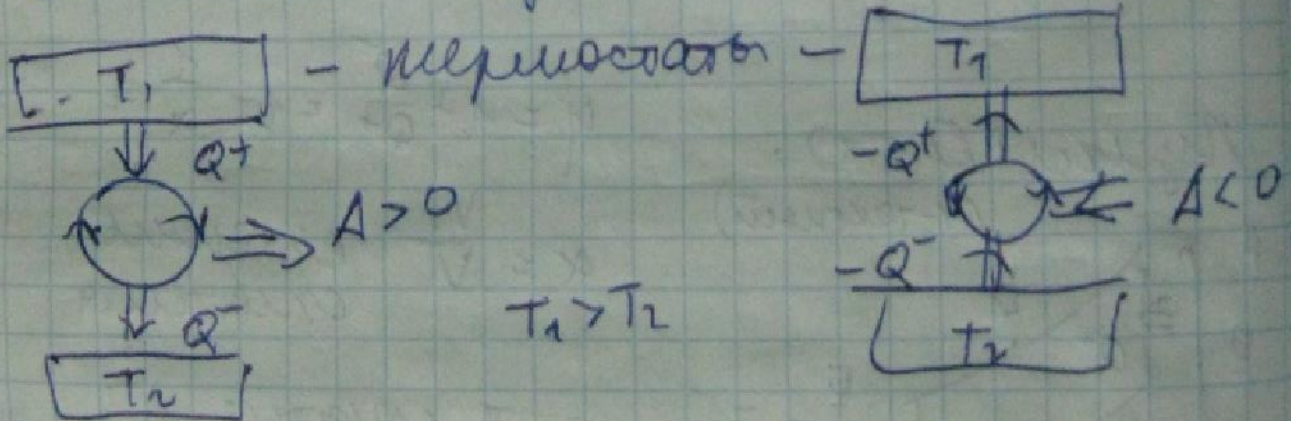 T₁ - термостаты - T₁
Q⁺ -Q⁺
A > 0 A < 0
Q⁻ T₁ > T₂ -Q⁻
T₂ T₂